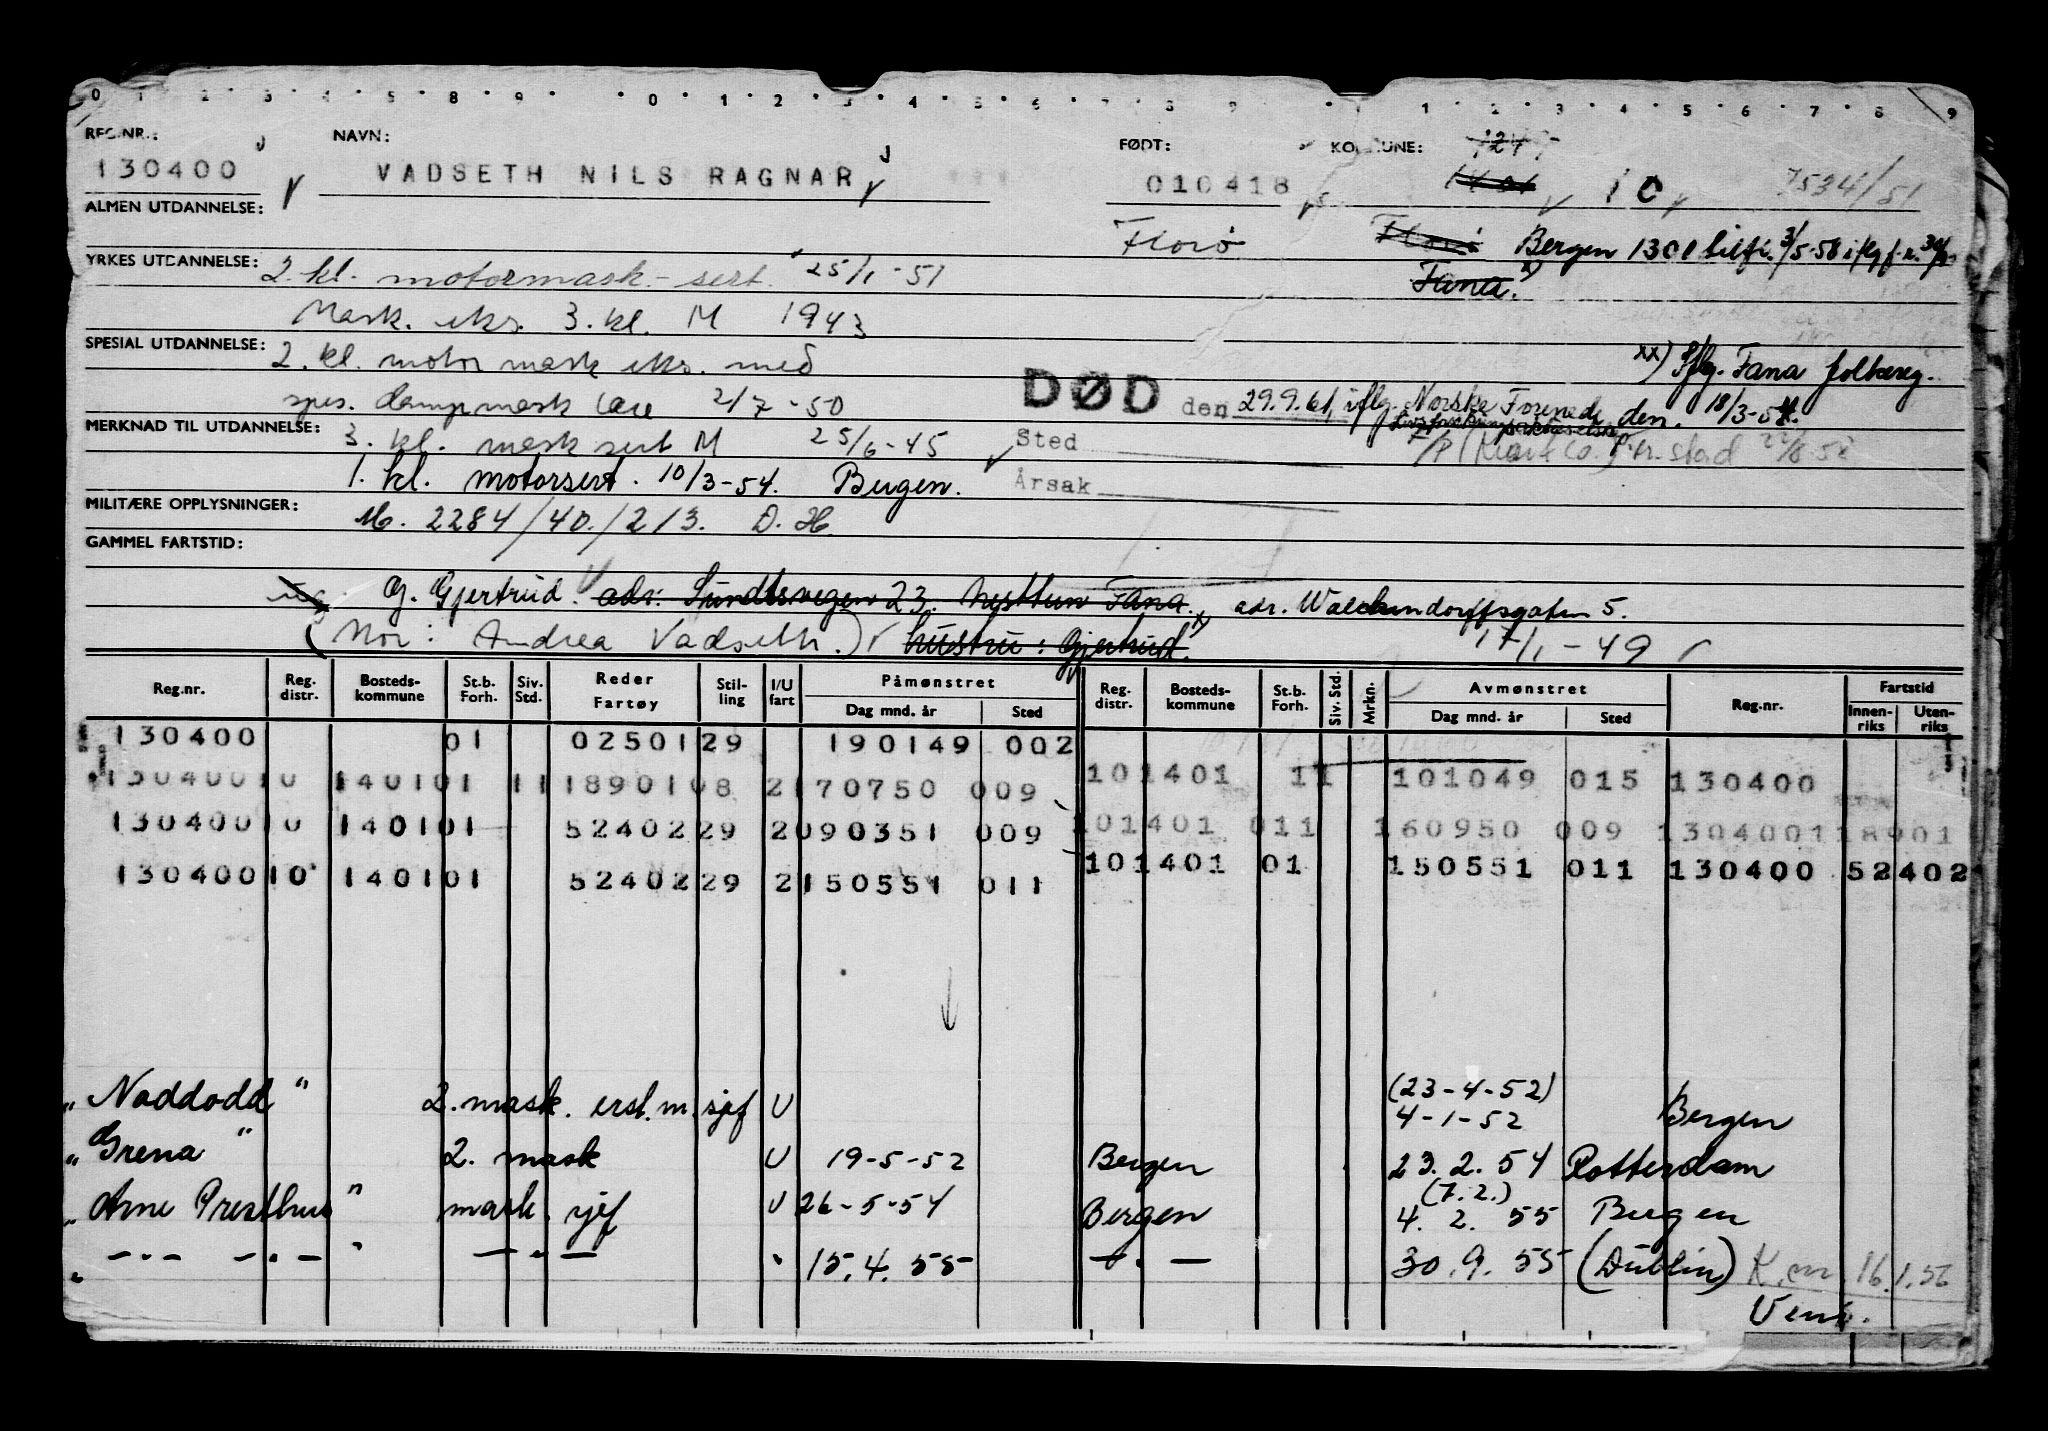 0 1 2 3 4 5 8 9 0 1 2 3 4 5 6 7 8 9 1 2 3 4 5 6 7 8 9
REG.NR.: NAVN: FØDT: KOMMUNE:
130400 VADSETH NILS RAGNAR 010418 1401 10 7534/51
ALMEN UTDANNELSE:
Florø Florø Bergen 1301
YRKES UTDANNELSE: 2. kl. motormask-sert. 25/1-51 Fana. x)
Mask. eks. 3. kl. M 1943
SPESIAL UTDANNELSE: 2. kl. motor mask eks. med xx) Iflg. Fana folkereg.
spes. dampmask lære 2/7-50 DØD den 29.9.61, iflg. Norske Forenede den. 18/3-54.
MERKNAD TIL UTDANNELSE: 3. kl. mask sert M 25/6-45 Sted
1. kl. motorsert. 10/3-54. Bergen. Årsak
MILITÆRE OPPLYSNINGER: M. 2284/40./2/3. D.H.
GAMMEL FARTSTID:
ug G. Gjertrud. adr: Sundtsvegen 23. Nesttun Fana. adr. Walckendorffsgaten 5.
(Mor: Andrea Vadseth.) hustru: Gjertrud. 17/1-49
Reg.nr. Reg. distr. Bosteds-kommune St.b. Forh. Siv. Std. Reder Fartøy Stil-ling I/U fart Påmønstret Dag mnd. år Sted Reg. distr. Bosteds-kommune St.b. Forh. Siv. Std. Mrkn. Avmønstret Dag mnd. år Sted Reg.nr. Fartstid Innen-riks Uten-riks
130400 01 02501 29 190149 002
130400 10 1401 01 11 18901 08 2 170750 009 10 1401 11 101049 015 130400
130400 10 1401 01 52402 29 2 090351 009 10 1401 011 160950 009 130400 118901
130400 10 1401 01 52402 29 2 150551 011 10 1401 01 150551 011 130400 52402
(23-4-52)
"Naddodd" 2. mask. erst. m. sjef U 4-1-52 Bergen
"Grena" 2. mask U 19-5-52 Bergen 23. 2. 54 Rotterdam
(7.2.)
"Arne Presthus" mask. sjef U 26-5-54 Bergen 4. 2. 55 Bergen
" -"- -"- " -"- " 15. 4. 55 -"- 30. 9. 55 (Dublin) K.m. 16.1.56